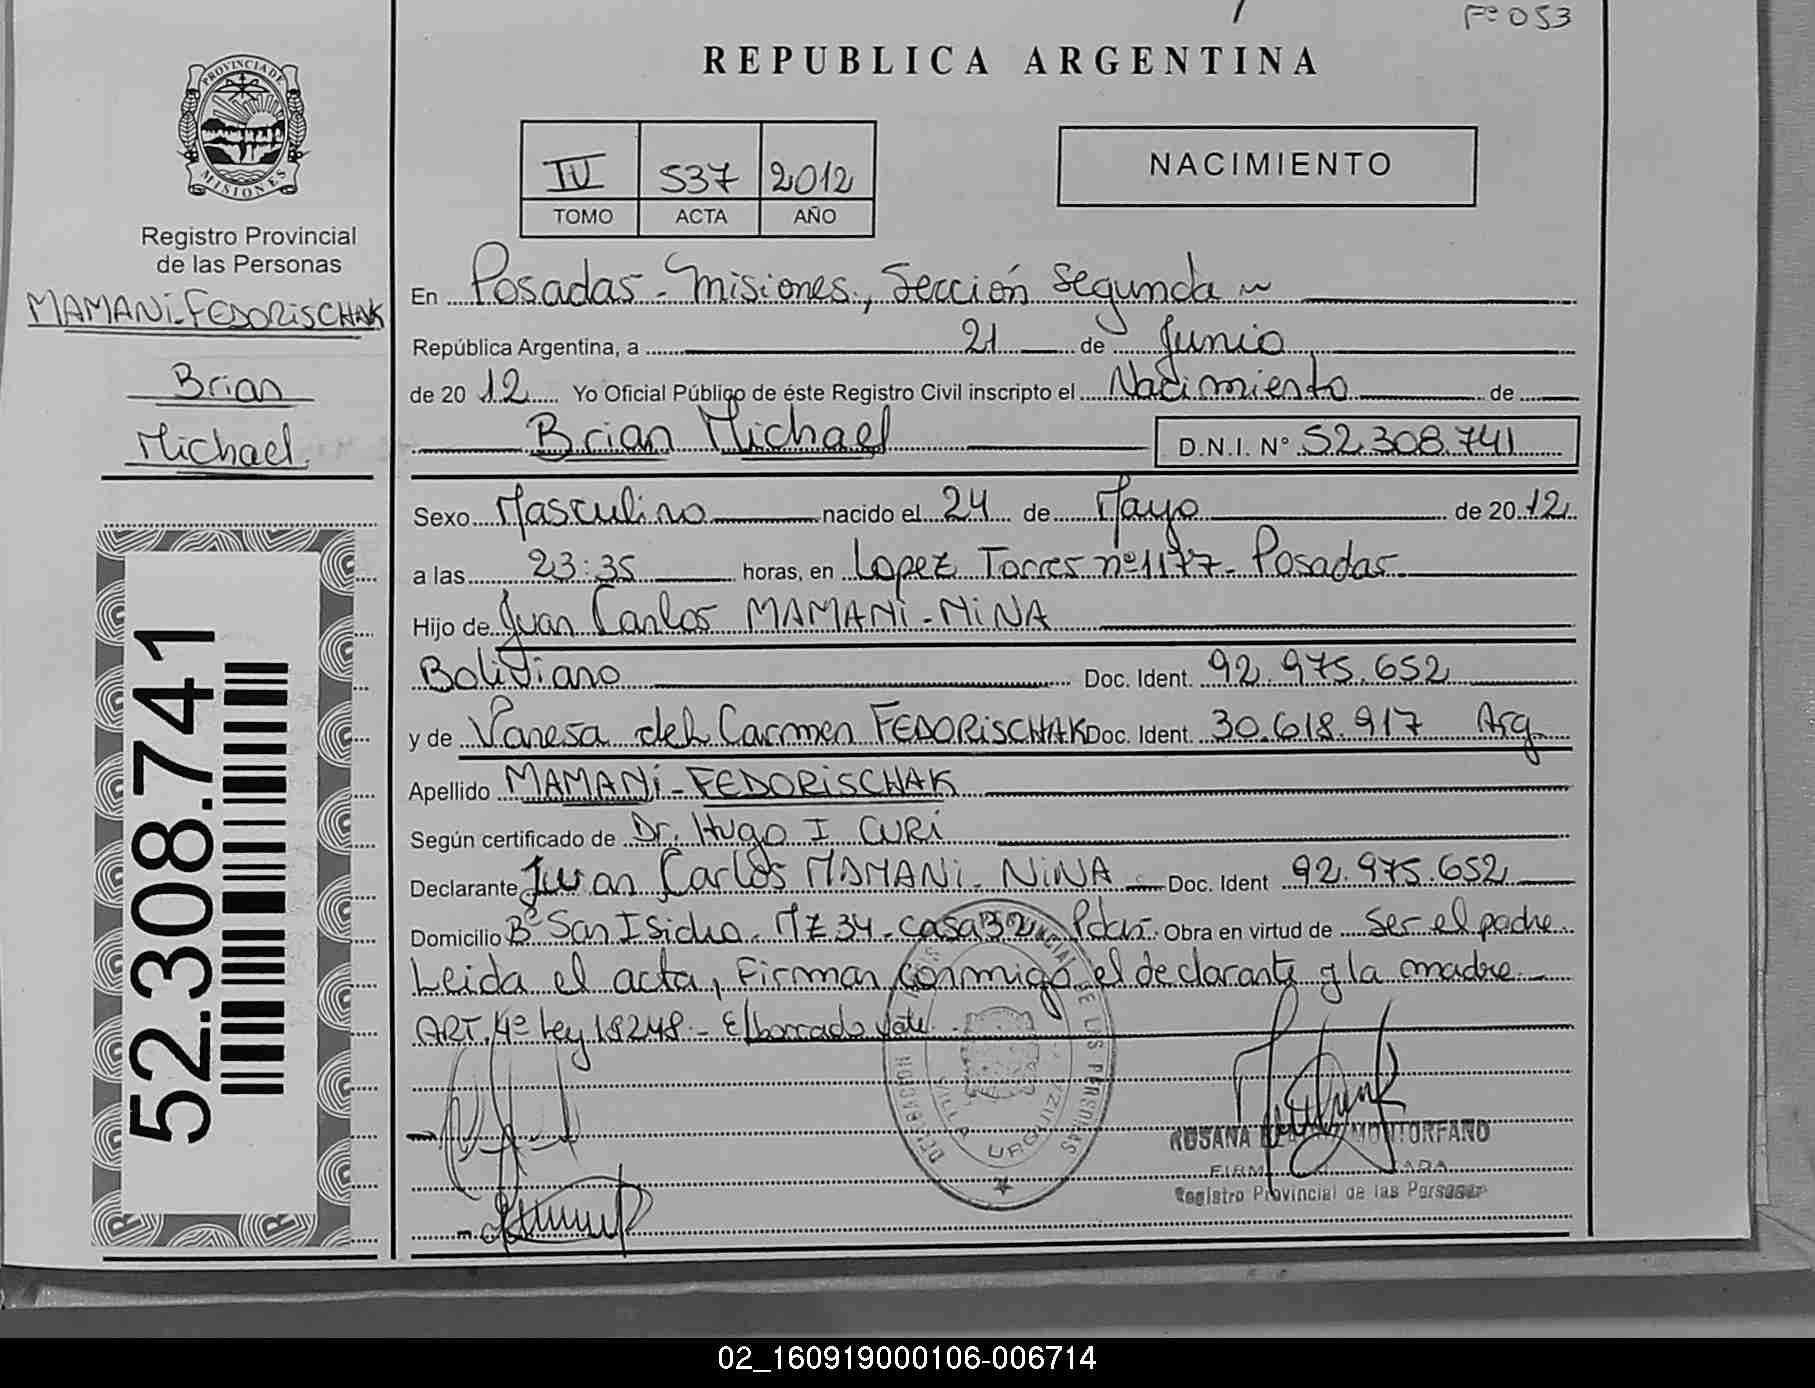 Fº 053
REPUBLICA ARGENTINA
PROVINCIA DE MISIONES
IV 537 2012
TOMO ACTA AÑO
NACIMIENTO
Registro Provincial
de las Personas
MAMANi-FEDORiSCHAK
Brian
Michael
52.308.741
En Posadas - Misiones, Sección Segunda
República Argentina, a 21 de Junio
de 2012 Yo Oficial Público de éste Registro Civil inscripto el Nacimiento de
Brian Michael D.N.I. Nº 52.308.741
Sexo Masculino nacido el 24 de Mayo de 2012
a las 23:35 horas, en Lopez Torres nº 1177 - Posadas
Hijo de Juan Carlos MAMANi - NiNA
Boliviano Doc. Ident. 92.975.652
y de Vanesa del Carmen FEDORiSCHAK Doc. Ident. 30.618.917 Arg.
Apellido MAMANi - FEDORiSCHAK
Según certificado de Dr. Hugo I. CURi
Declarante Juan Carlos MAMANi - NiNA Doc. Ident 92.975.652
Domicilio Bº San Isidro - MZ 34 - casa 32 Pdas. Obra en virtud de Ser el padre
Leida el acta, Firman conmigo el declarante y la madre
ART. 4º Ley 18248 - El borrado vale.
DELEGACION VILLA URQUIZA
PROVINCIAL DE LAS PERSONAS
ROSANA MONTORFANO
Registro Provincial de las Personas
02_160919000106-006714